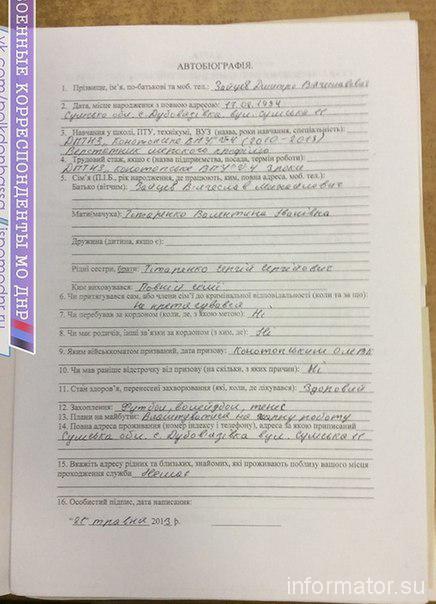 ВОЕННЫЕ КОРРЕСПОНДЕНТЫ МО ДНР
АВТОБІОГРАФІЯ.
1. Прізвище, ім'я, по-батькові та моб. тел.: Зайцев Дмитро Вячеславович
2. Дата, місце народження з повною адресою: 17.08.1994
Сумська обл. с. Дубовязівка, вул. Сумська
3. Навчання у школі, ПТУ, технікумі, ВУЗ (назва, роки навчання, спеціальність):
ДПТНЗ, Конотопське ВПУ №4 (2010-2013)
Верстатник широкого профілю
4. Трудовий стаж, якщо є (назва підприємства, посада, термін роботи):
ДПТНЗ, конотопське ВПУ №4 3 роки
Сім'я (П.І.Б., рік народження, де працюють, ким, повна адреса, моб. тел.):
Батько (вітчим): Зайцев Вячеслав Михайлович
Мати(мачуха): Тітаренко Валентина Іванівна
Дружина (дитина, якщо є):
Рідні сестри, брати: Тітаренко Сергій Сергійович
Ким виховувався: Повній сімї
6. Чи притягувався сам, або члени сім'ї до кримінальної відповідальності (коли та за що):
Не притягувався
7. Чи перебував за кордоном (коли, де, з якою метою): Ні
8. Чи має родичів, інші зв'язки за кордоном (з ким, де): Ні
9. Яким військкоматом призваний, дата призову: Конотопським ОМВК
10. Чи мав раніше відстрочку від призову (на скільки, з яких причин): Ні
11. Стан здоров'я, перенесені захворювання (які, коли, де лікувався): Здоровий
12. Захоплення: Футбол, волейбол, теніс
13. Плани на майбутнє: Влаштуватися на гарну роботу
14. Повна адреса проживання (номер індексу і телефону), адреса за якою приписаний
Сумська обл. с. Дубов'язівка вул. Сумська
15. Вкажіть адресу рідних та близьких, знайомих, які проживають поблизу вашого місця
проходження служби Немає
16. Особистий підпис, дата написання:
травня 2013 р.
informator.su